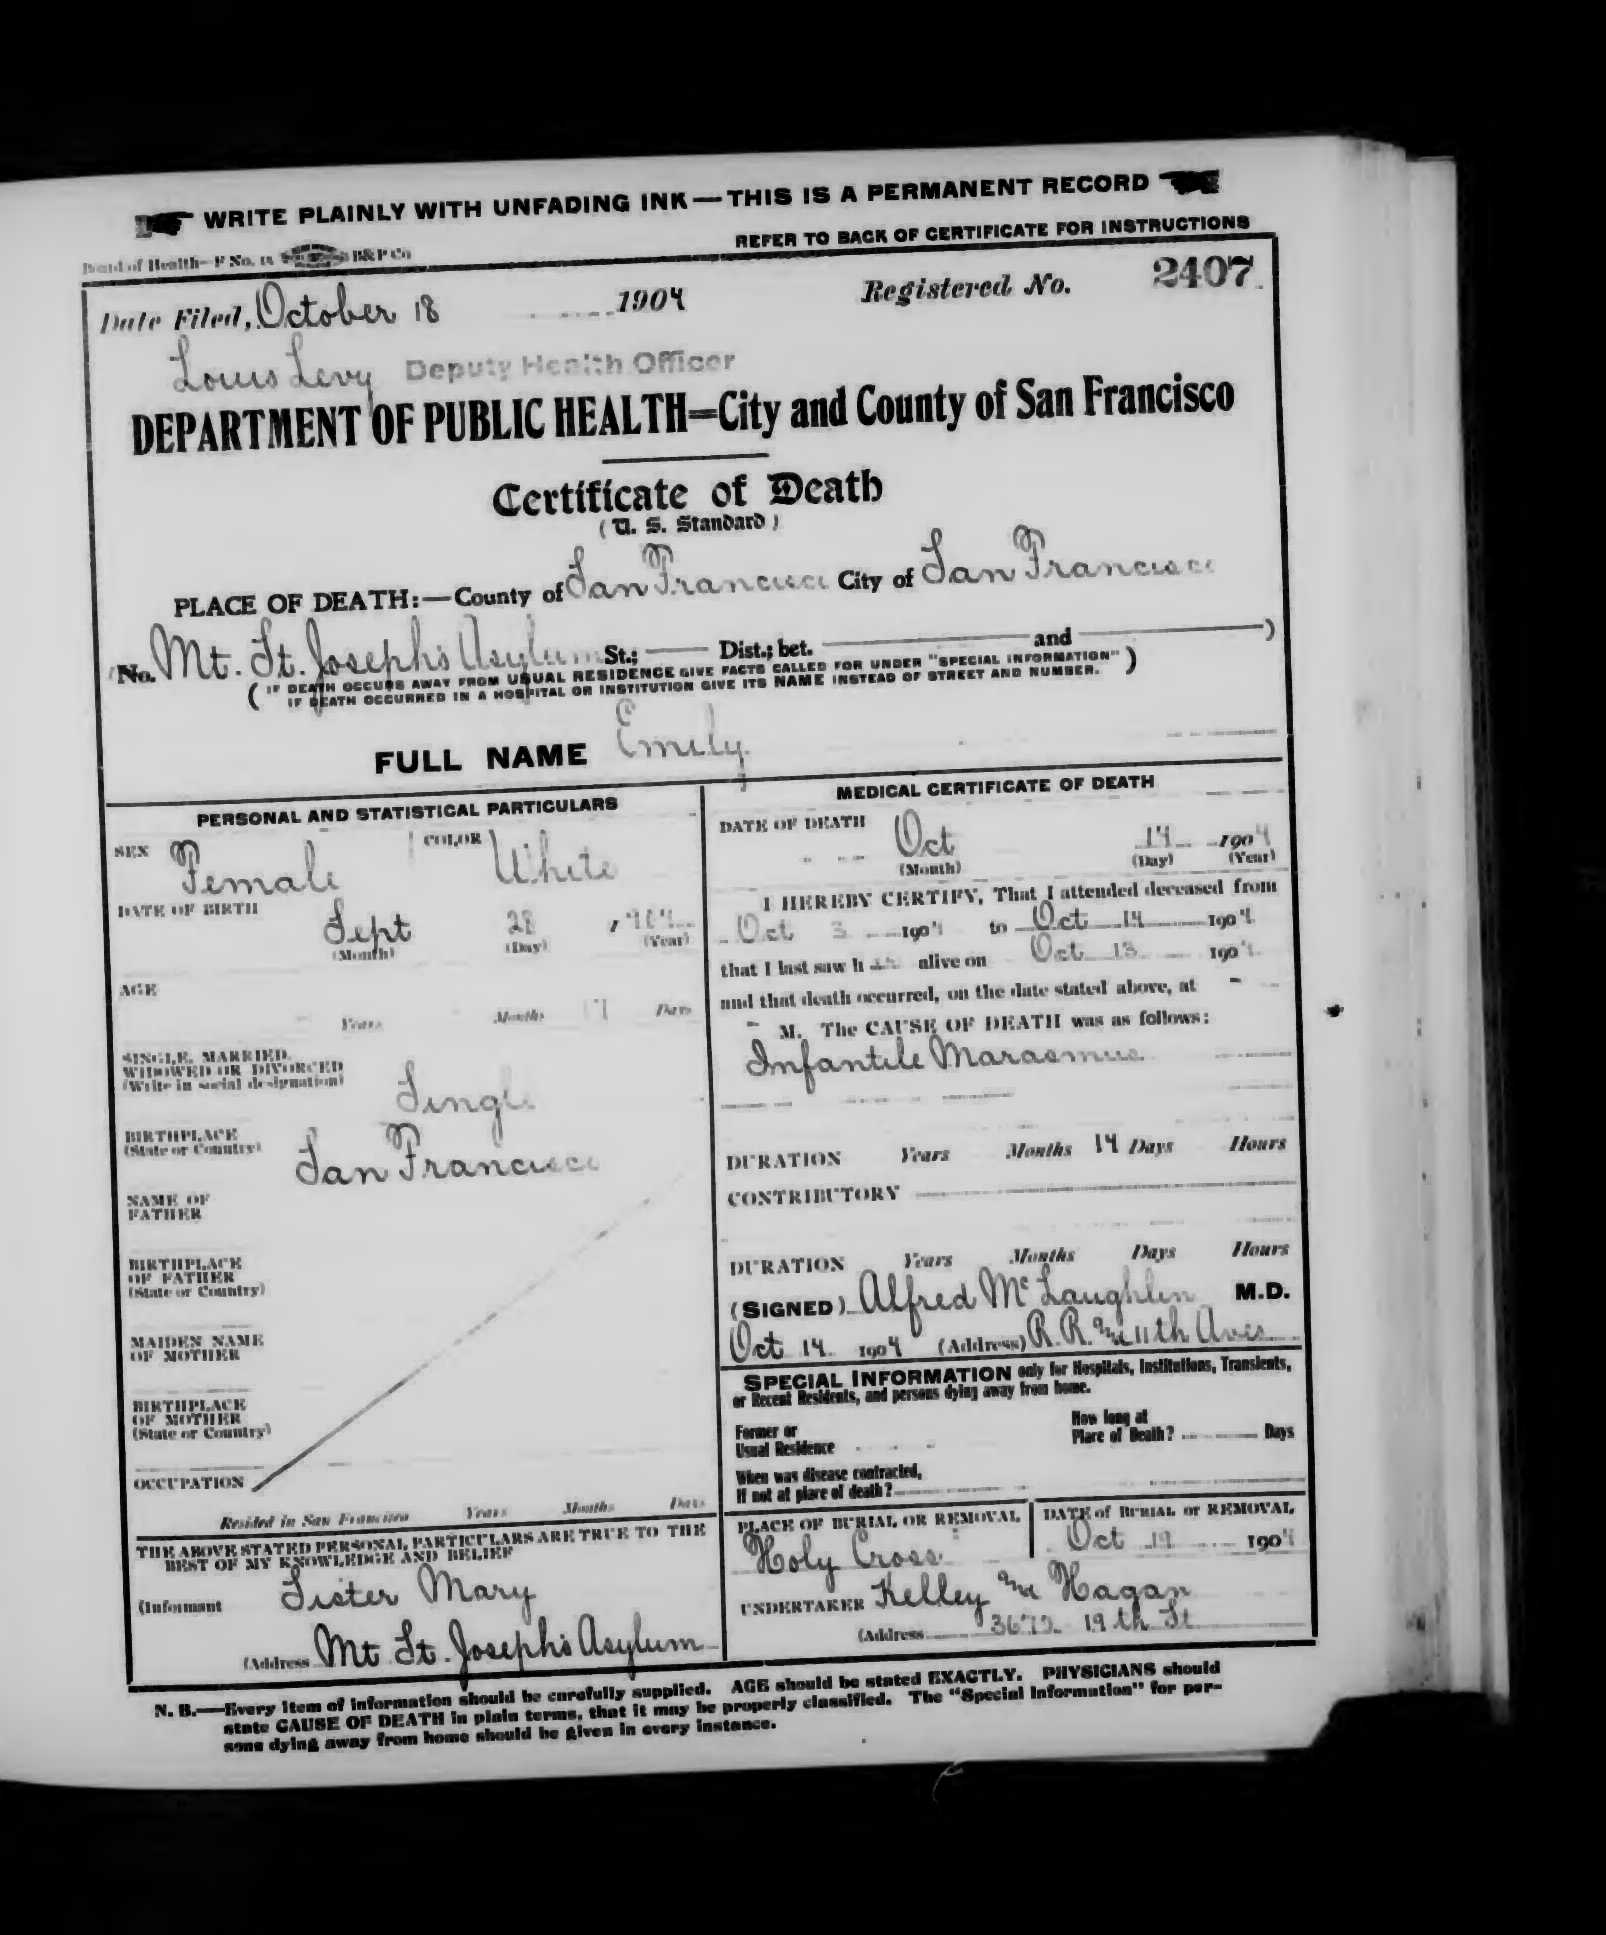 WRITE PLAINLY WITH UNFADING INK — THIS IS A PERMANENT RECORD
REFER TO BACK OF CERTIFICATE FOR INSTRUCTIONS
Board of Health—F No. 1A B&P Co
Date Filed, October 18 1904 Registered No. 2407
Louis Levy Deputy Health Officer
DEPARTMENT OF PUBLIC HEALTH=City and County of San Francisco
Certificate of Death
(U. S. Standard)
PLACE OF DEATH:—County of San Francisco City of San Francisco
(No. Mt. St. Joseph's Asylum St.; Dist.; bet. and )
( IF DEATH OCCURS AWAY FROM USUAL RESIDENCE GIVE FACTS CALLED FOR UNDER "SPECIAL INFORMATION" )
IF DEATH OCCURRED IN A HOSPITAL OR INSTITUTION GIVE ITS NAME INSTEAD OF STREET AND NUMBER.
FULL NAME Emily
PERSONAL AND STATISTICAL PARTICULARS
SEX Female COLOR White
DATE OF BIRTH Sept 28 , 1904
(Month) (Day) (Year)
AGE
Years Months 17 Days
SINGLE, MARRIED,
WIDOWED OR DIVORCED
(Write in social designation) Single
BIRTHPLACE
(State or Country) San Francisco
NAME OF
FATHER
BIRTHPLACE
OF FATHER
(State or Country)
MAIDEN NAME
OF MOTHER
BIRTHPLACE
OF MOTHER
(State or Country)
OCCUPATION
Resided in San Francisco Years Months Days
THE ABOVE STATED PERSONAL PARTICULARS ARE TRUE TO THE
BEST OF MY KNOWLEDGE AND BELIEF
(Informant Sister Mary
(Address Mt St. Joseph's Asylum
MEDICAL CERTIFICATE OF DEATH
DATE OF DEATH Oct 14 1904
(Month) (Day) (Year)
I HEREBY CERTIFY, That I attended deceased from
Oct 3 1904 to Oct 14 1904
that I last saw h alive on Oct 13 1904
and that death occurred, on the date stated above, at
M. The CAUSE OF DEATH was as follows:
Infantile Marasmus
DURATION Years Months 14 Days Hours
CONTRIBUTORY
DURATION Years Months Days Hours
(SIGNED) Alfred McLaughlin M.D.
Oct 14 1904 (Address) R.R. and 11th Aves
SPECIAL INFORMATION only for Hospitals, Institutions, Transients,
or Recent Residents, and persons dying away from home.
Former or
Usual Residence
How long at
Place of Death? Days
When was disease contracted,
If not at place of death?
PLACE OF BURIAL OR REMOVAL DATE of BURIAL or REMOVAL
Holy Cross Oct 19 1904
UNDERTAKER Kelley and Hagan
(Address 3672 19th St
N. B.—Every item of information should be carefully supplied. AGE should be stated EXACTLY. PHYSICIANS should
state CAUSE OF DEATH in plain terms, that it may be properly classified. The "Special Information" for per-
sons dying away from home should be given in every instance.